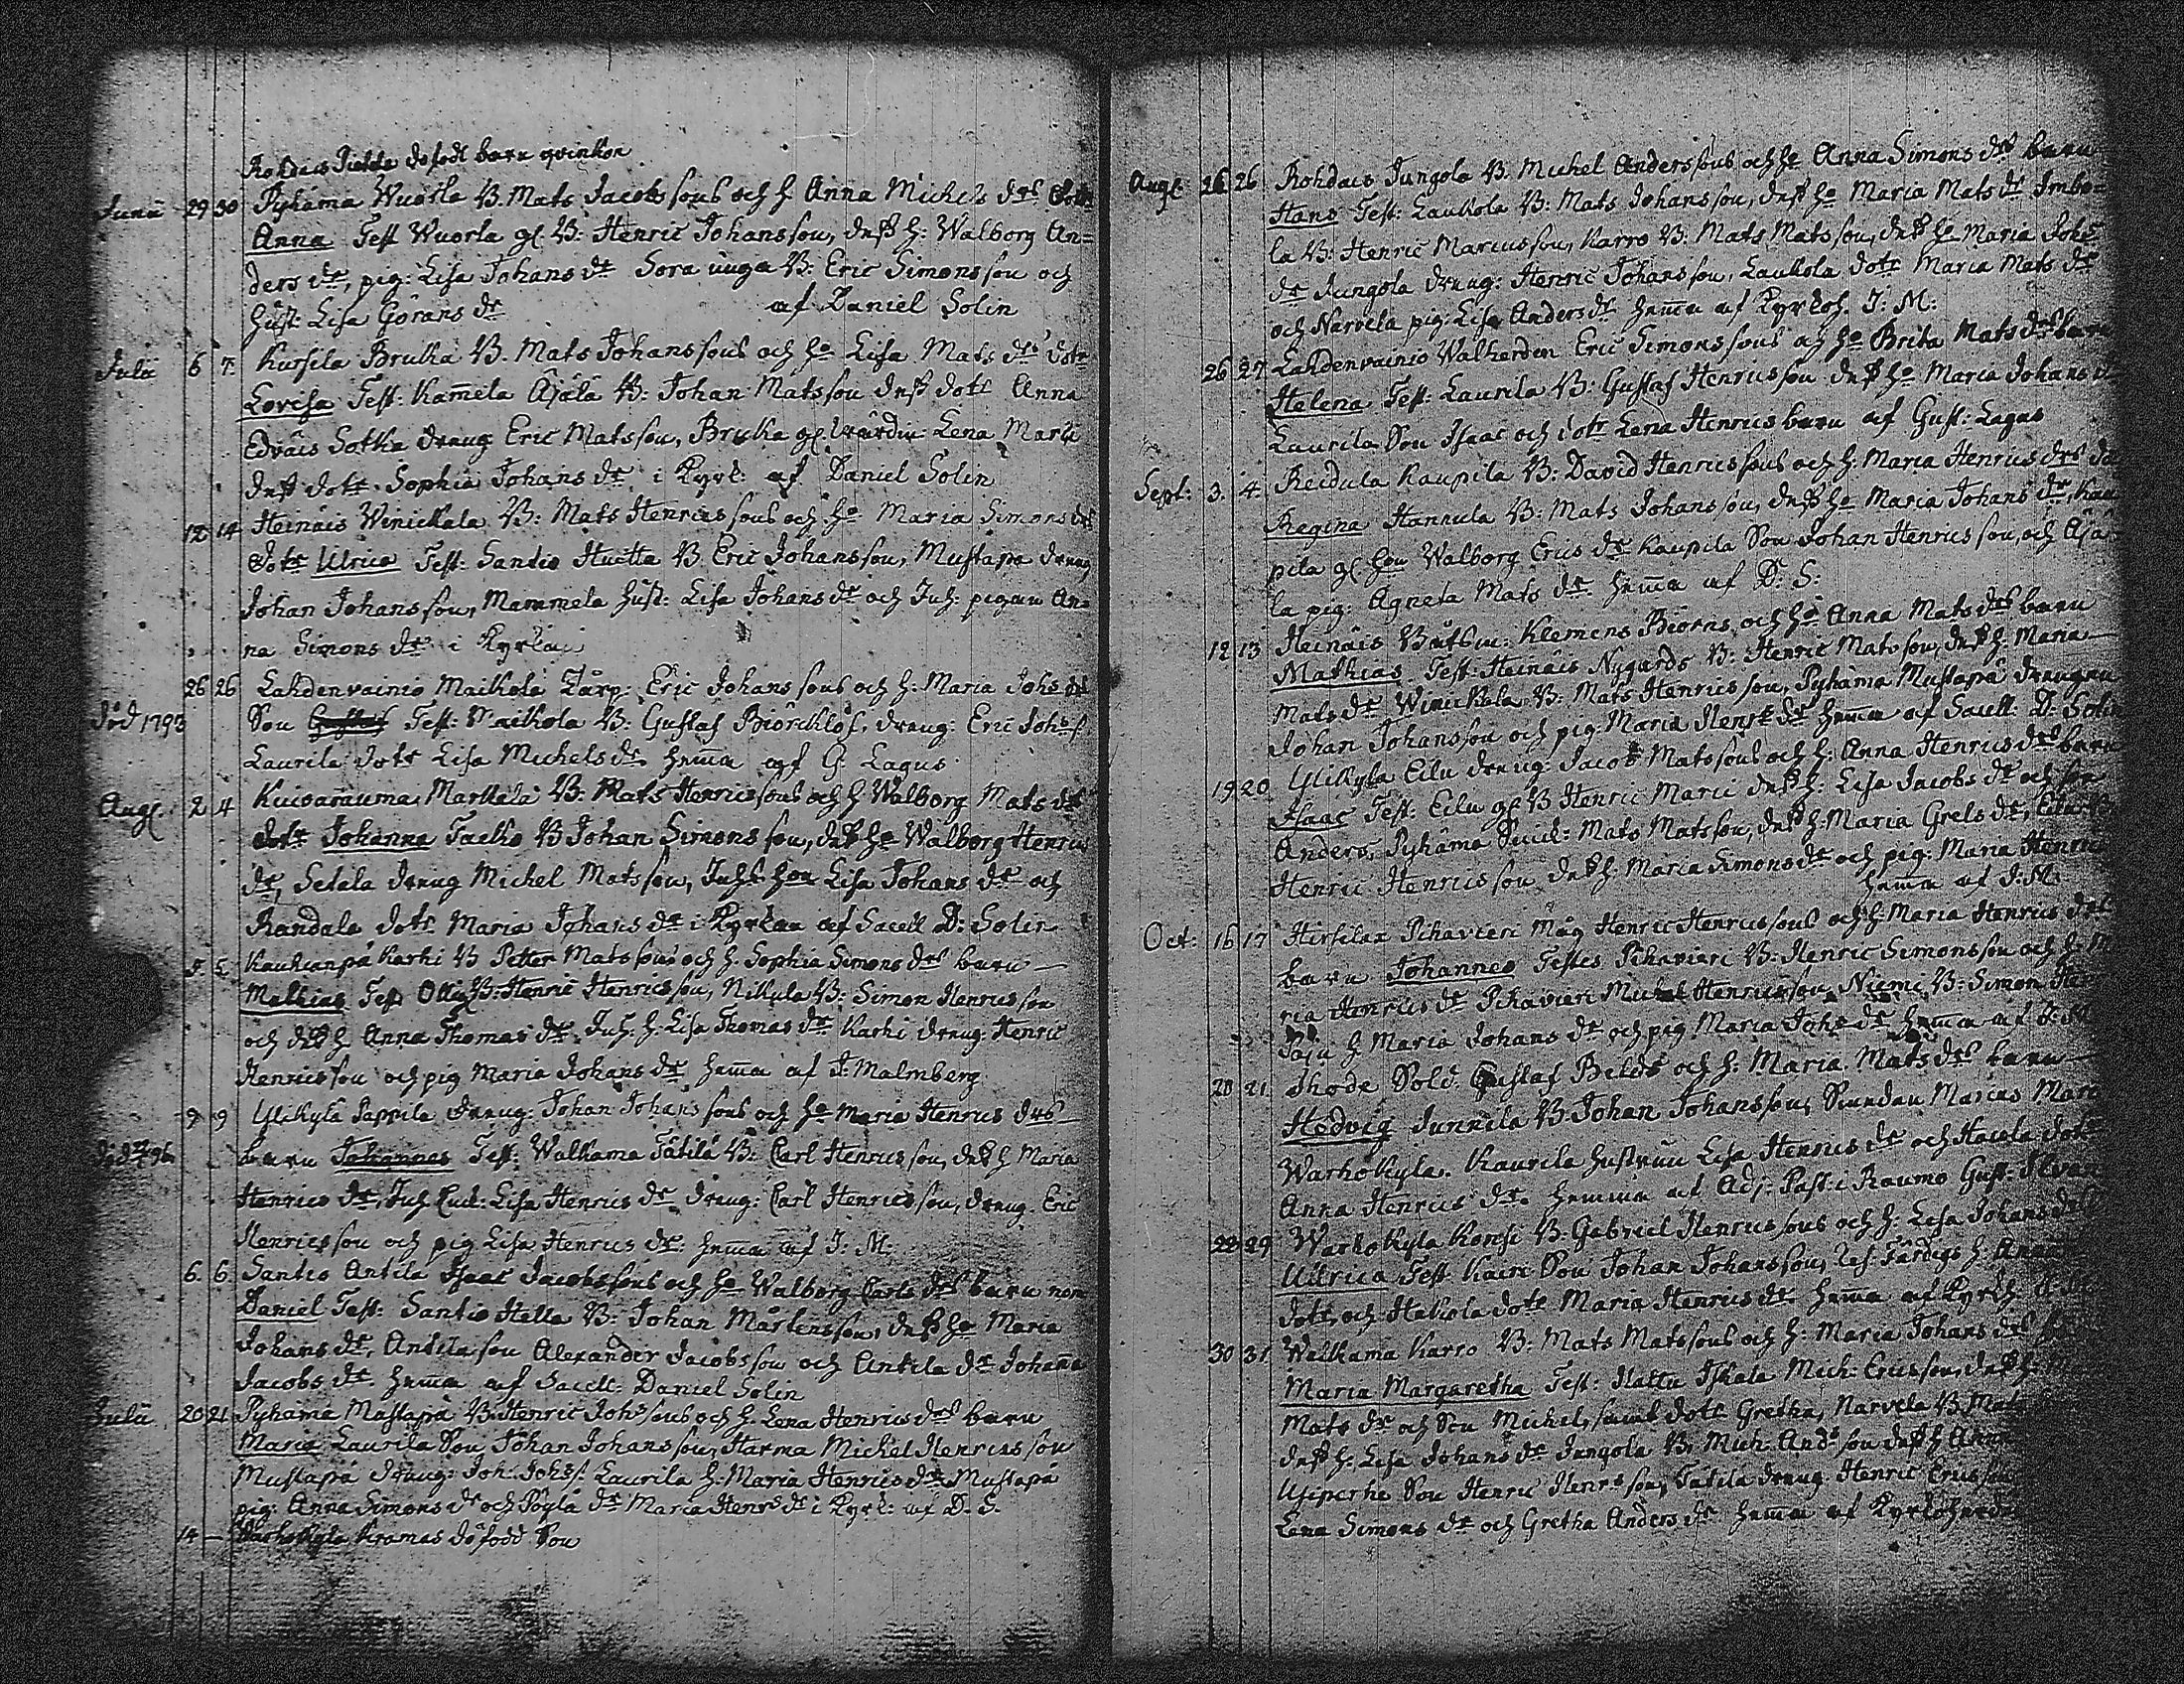 Rohdais Sickola dåfödt barn qvinkön
Junii 29 30 Pyhäma Wuorla B. Mats Jacobssons och h Anna Michels drs dotr
Anna Test Wuorla gl B: Henric Johansson, dess h: Walborg An=
ders dr, pig: Lisa Johans dr Sora unga B: Eric Simonsson och
hust: Lisa Görans dr af Daniel Solin
Julii 6 7 Kursila Bruka B. Mats Johanssons och ho Lisa Mats drs dotr
Lovisa Test: Kam̄ela Äjälä B: Johan Matsson dess dotr Anna
Edväis Sotka dreng Eric Matsson, Bruka gl. Wärdin Lena Marti
dess dotr Sophia Johans dr i Kyrk: af Daniel Solin
12 14 Heinäis Winickala B: Mats Henricssons och ho Maria Simons drs
dotr Ulrica Test: Santio Huitta B Eric Johansson, Mustapä dreng
Johan Johansson, Mammela hust: Lisa Johans dr och Inh: pigan An=
na Simons dr i Kyrkan
26 26 Lahdenvainio Maikola Tårp: Eric Johanssons och h: Maria Johs drs
död 1793 Son Gustaf Test: Maikola B: Gustaf Biörcklöf, dreng: Eric Johs s.
Laurila dotr Lisa Michels dr hem̄a af G. Lagus
Aug. 2 4 Kuivarauma Markala B: Mats Henricssons och h Walborg Mats drs
dotr Johanna Taelho B Johan Simonsson, dess ho Walborg Henrics
dr, Setala dreng Michel Matsson, Inhs hon Lisa Johans dr och
Randala dotr Maria Johans dr i Kyrkan af Sacell D: Solin
5. 5. Kauhianpä Karhi B Petter Matssons och h. Sophia Simons drs barn
Mathias Test Olli B: Henric Henricsson, Nikula B: Simon Henricsson
och dess h Anna Thomas dr Inh. h. Lisa Thomas dr Karhi dreng: Henric
Henricsson och pig Maria Johans dr hem̄a af J. Malmberg
9 9 Ylikylä Pappila dreng: Johan Johanssons och ho Maria Henrics drs
död 1796 barn Johannes Test: Walkama Tätilä B: Carl Henricsson, dess h Maria
Henrics dr, Inh Enk: Lisa Henrics dr dreng: Carl Henricsson, dreng Eric
Henricsson och pig Lisa Henrics dr: hem̄a af J: M:
6. 6. Santio Antila Isaac Jacobssons och ho Walborg Carls drs barn
Daniel Test: Santio Hella B: Johan Mårtensson, dess ho Maria
Johans dr, Antila son Alexander Jacobsson och Antila dr Johanna
Jacobs dr hem̄a af Sacell: Daniel Solin
Julii 20 21 Pyhämä Mustapä B: Henric Johssons och h. Lena Henrics drs barn
Maria Laurila Son Johan Johansson, Harma Michel Henricsson
Mustapä dreng: Joh: Johss. Laurila h: Maria Henrics dr Mustapä
pig: Anna Simons dr och Pöglä dr Maria Henrs dr i Kyrk: af D. S.
14 — Warhokylä Kramas döfödd Son
Aug. 26 26 Rohdais Jungola B. Michel Anderssons och ho Anna Simons drs barn
Hans Test: Laukola B: Mats Johansson, dess ho Maria Mats dr Imbo=
la B: Henric Marcusson, Karro B: Mats Matsson, dess ho Maria Johs
dr Jungola dreng: Henric Johansson, Laukola dotr Maria Mats dr
och Narvela pig: Lisa Anders dr hem̄a af Kyrkoh. J: M:
26 27 Lahdenvainio Walherdin Eric Simonssons och ho Brita Mats drs barn
Helena Test: Laurila B: Gustaf Henricsson dess ho Maria Johans dr
Laurila Son Isaac och dotr Lena Henrics barn af Gust: Lagus
Sept: 3. 4. Reidula Kaupila B: David Henricssons och h: Maria Henrics drs do
Regina Hannula B: Mats Johansson, dess ho Maria Johans dr, Kau
pila gl hon Walborg Erics dr Kaupila Son Johan Henricsson, och Äjä
la pig: Agneta Mats dr hem̄a af D: S:
12 13 Heinäis Båtsm: Klemens Biörns och ho Anna Mats drs barn
Mathias Test: Heinäis Nygårds B: Henric Matsson, dess h: Maria
Mats dr Winickala B: Mats Henricsson, Pyhäma Mustapä drengen
Johan Johansson och pig: Maria Henr: dr hem̄a af Sacell: D. Solin
19 20 Ylikyla Eilu dreng: Jacob Matssons och h: Anna Henrics drs barn
Isaac Test: Eilu gl B Henric Marci dess h: Lisa Jacobs dr och son
Anders, Pyhäma Mats Matsson, dess h: Maria Grels dr, Eilu B
Henric Henricsson dess h: Maria Simons dr och pig: Maria Henrics
hem̄a af J: M:
Oct: 16 17 Hirsilax Pihavieri Måg Henric Henricssons och h: Maria Henrics drs
barn Johannes Testes Pihavieri B: Henric Simonsson och h: Ma
ria Henrics dr Pihavieri Michel Henricsson Niemi B: Simon Hen
Paju h Maria Johans dr och pig Maria Johs dr hem̄a af J: M
20 21 Ihode Sold. Gustaf Belds och h: Maria Mats drs barn
Hedvig Junnila B Johan Johansson, Marias Mar
Warhokyla. Kaurila hustrun Lisa Henrics dr och Hacola dotr
Anna Henrics dr. hemma af Adj: Past: i Raumo Gust:
22 29 Warhokyla Konsi B: Gabriel Henricssons och h: Lisa Johans drs
Ullrica Test Kairi Son Johan Johansson, Ref: Färdigs h: Anna
dotr, och Hakiola dotr Maria Henrics dr hem̄a af Kyrkh
30 31 Walkama Karro B: Mats Matssons och h: Maria Johans drs
Maria Margaretha Test: Kattu Iskala Mich: Ericsson, dess h:
Mats dr och Son Michel, samt dotr Gretha, Narvela B: Mats
dess h: Lisa Johans dr Jungola B: Mich: And:son dess h Anna
Ylipirhi Son Henric Henrsson, Tätila dreng Henric Ericsson
Lena Simons dr och Gretha Anders dr hem̄a af Kyrkoherde